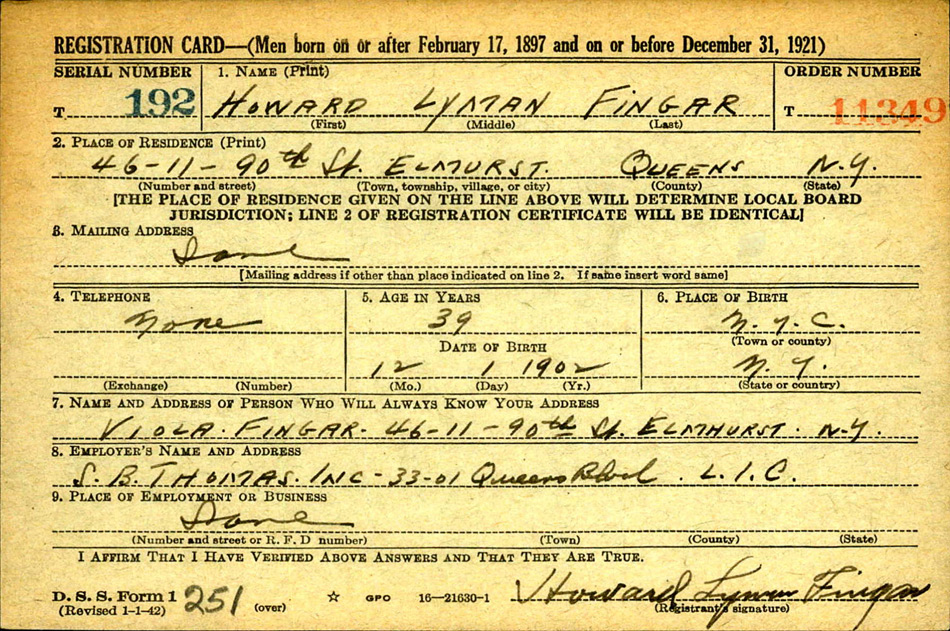 REGISTRATION CARD—(Men born on or after February 17, 1897 and on or before December 31, 1921)
SERIAL NUMBER 1. NAME (Print) ORDER NUMBER
T 192 HOWARD LYMAN FINGAR T 11349
(First) (Middle) (Last)
2. PLACE OF RESIDENCE (Print)
46-11-90th St. ELMURST. QUEENS N.Y.
(Number and street) (Town, township, village, or city) (County) (State)
[THE PLACE OF RESIDENCE GIVEN ON THE LINE ABOVE WILL DETERMINE LOCAL BOARD
JURISDICTION; LINE 2 OF REGISTRATION CERTIFICATE WILL BE IDENTICAL]
3. MAILING ADDRESS
Same
[Mailing address if other than place indicated on line 2. If same insert word same]
4. TELEPHONE 5. AGE IN YEARS 6. PLACE OF BIRTH
None 39 N.Y.C.
(Town or county)
DATE OF BIRTH
12 1 1902 N.Y.
(Exchange) (Number) (Mo.) (Day) (Yr.) (State or country)
7. NAME AND ADDRESS OF PERSON WHO WILL ALWAYS KNOW YOUR ADDRESS
VIOLA. FINGAR. 46-11-90th St. ELMHURST. N.Y.
8. EMPLOYER'S NAME AND ADDRESS
S. B. THOMAS. INC-33-01 Queens Blvd. L.I.C.
9. PLACE OF EMPLOYMENT OR BUSINESS
Same
(Number and street or R. F. D number) (Town) (County) (State)
I AFFIRM THAT I HAVE VERIFIED ABOVE ANSWERS AND THAT THEY ARE TRUE.
D. S. S. Form 1 251 (over) ☆ GPO 16—21630-1 Howard Lyman Fingar
(Revised 1-1-42) (Registrant's signature)